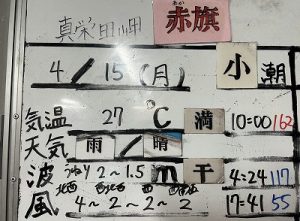 真栄田岬 赤旗
4/15(月) 小潮
気温 27℃ 満 10:00 162
天気 雨/晴
波 うねり 2~1.5m 干 4:24 117
風 4~2~2~2 17:41 55